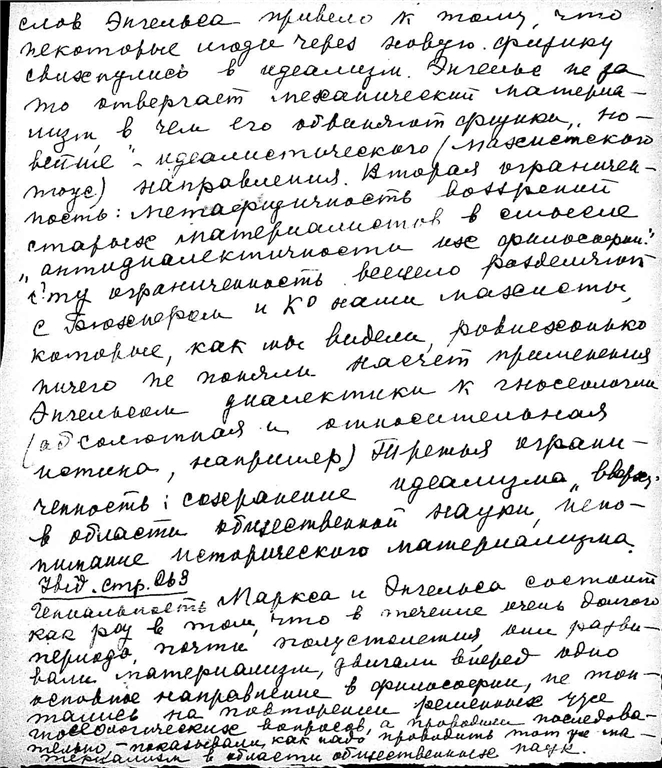 слов Энгельса привело к тому, что
некоторые люди через новую физику
свихнулись в идеализм. Энгельс не за
то отвергает механический материа-
лизм, в чем его обвиняют физики „но-
вейше"- идеалистического (махистского
тоус) направления. Вторая ограничен-
ность: метафизичность воззрений
старых материалистов в смысле
„антидиалектичности их философии."
Эту ограниченность всецело разделяют
с Бюхнером и Ко наши махисты,
которые, как мы видели, ровнехонько
ничего не поняли насчет применения
Энгельсом диалектики к гносеологии
(абсолютная и относительная
истина, например) Третья ограни-
ченность: сохранение идеализма „вверху"
в области общественной науки, непо-
нимание исторического материализма.
стр. 263
Гениальность Маркса и Энгельса состоит
как раз в том, что в течение очень долгого
периода, почти полустолетия, они разви-
вали материализм, двигали вперед одно
основное направление в философии, не топ-
тались на повторении решенных уже
гносеологических вопросов, а проводили последова-
тельно, - показывали, как надо проводить тот же ма-
териализм в области общественных наук.